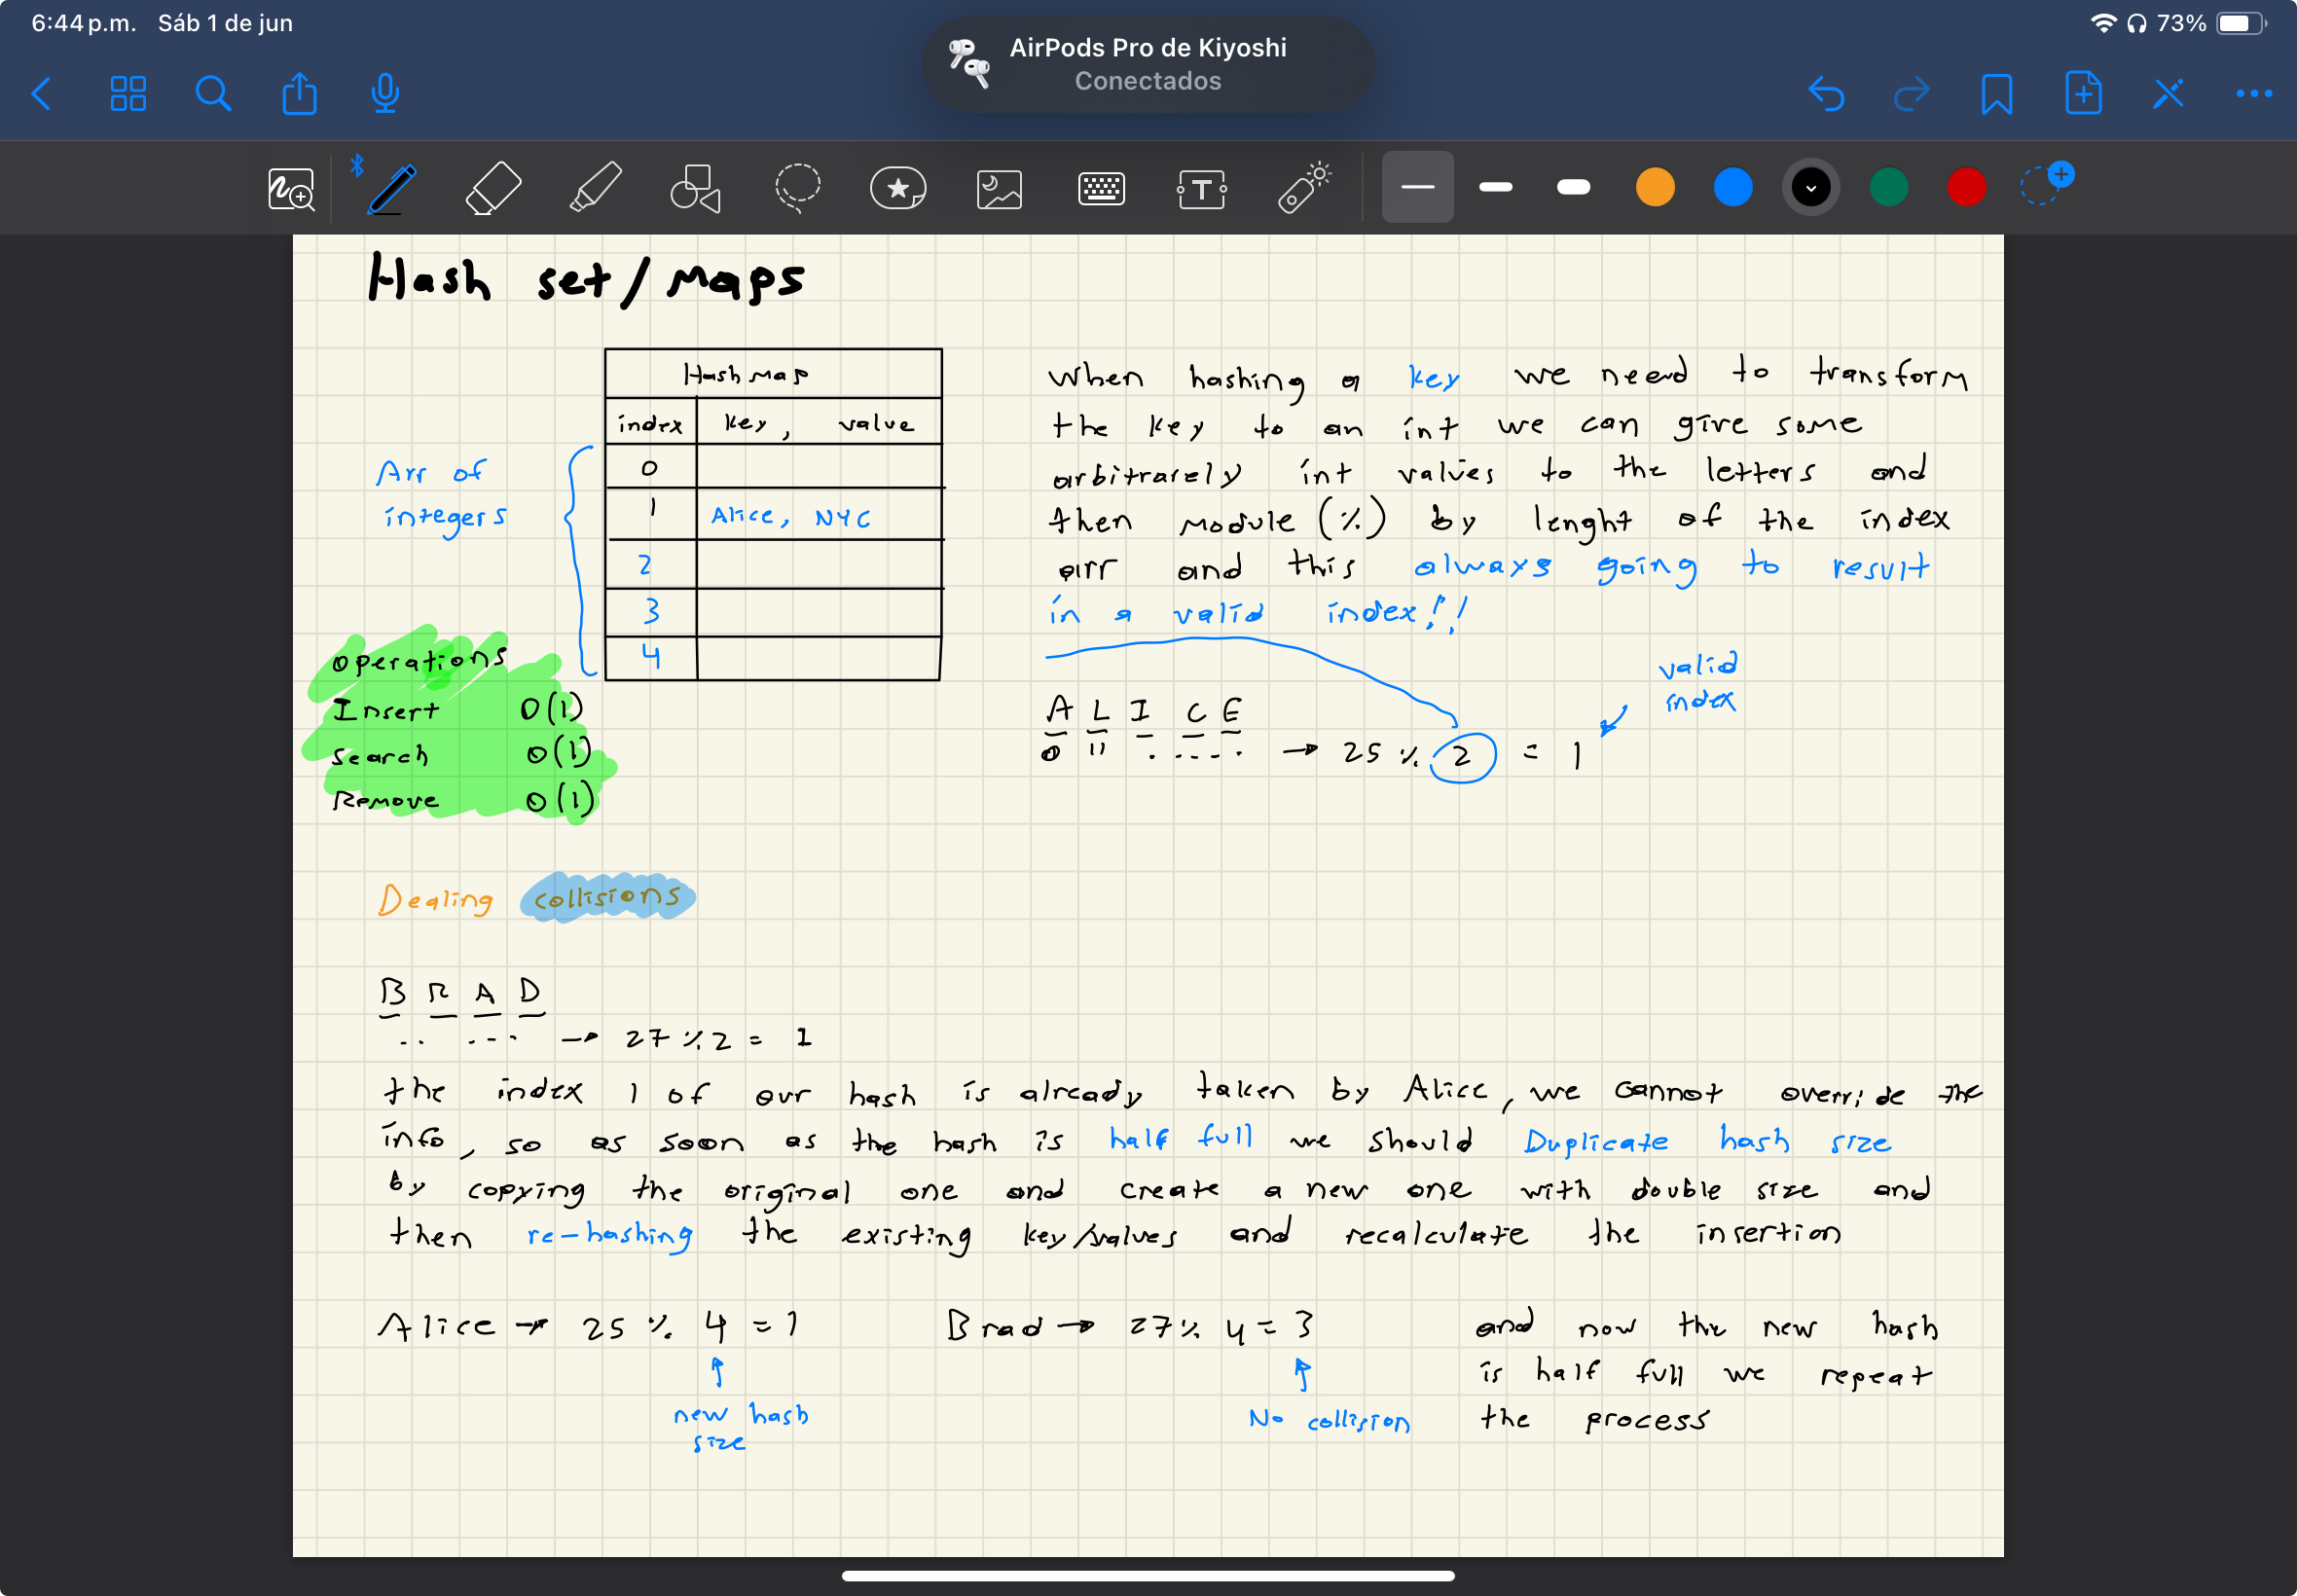 6:44 p.m. Sáb 1 de jun
AirPods Pro de Kiyoshi
Conectados
73%
Hash set/Maps
Hash map
index key, value
0
1 Alice, NYC
2
3
4
Arr of
integers
Operations
Insert O(1)
Search O(1)
Remove O(1)
When hashing a key we need to transform
the key to an int we can give some
arbitrarely int values to the letters and
then module (%) by lenght of the index
arr and this always going to result
in a valid index!!
valid
index
A L I C E
0 11 . .... → 25 % 2 = 1
Dealing collisions
B R A D
.. ... → 27 % 2 = 1
the index 1 of our hash is already taken by Alice, we cannot override the
info, so as soon as the hash is half full we should Duplicate hash size
by copying the original one and create a new one with double size and
then re-hashing the existing key/values and recalculate the insertion
Alice → 25 % 4 = 1
new hash
size
Brad → 27 % 4 = 3
No collision
and now the new hash
is half full we repeat
the process